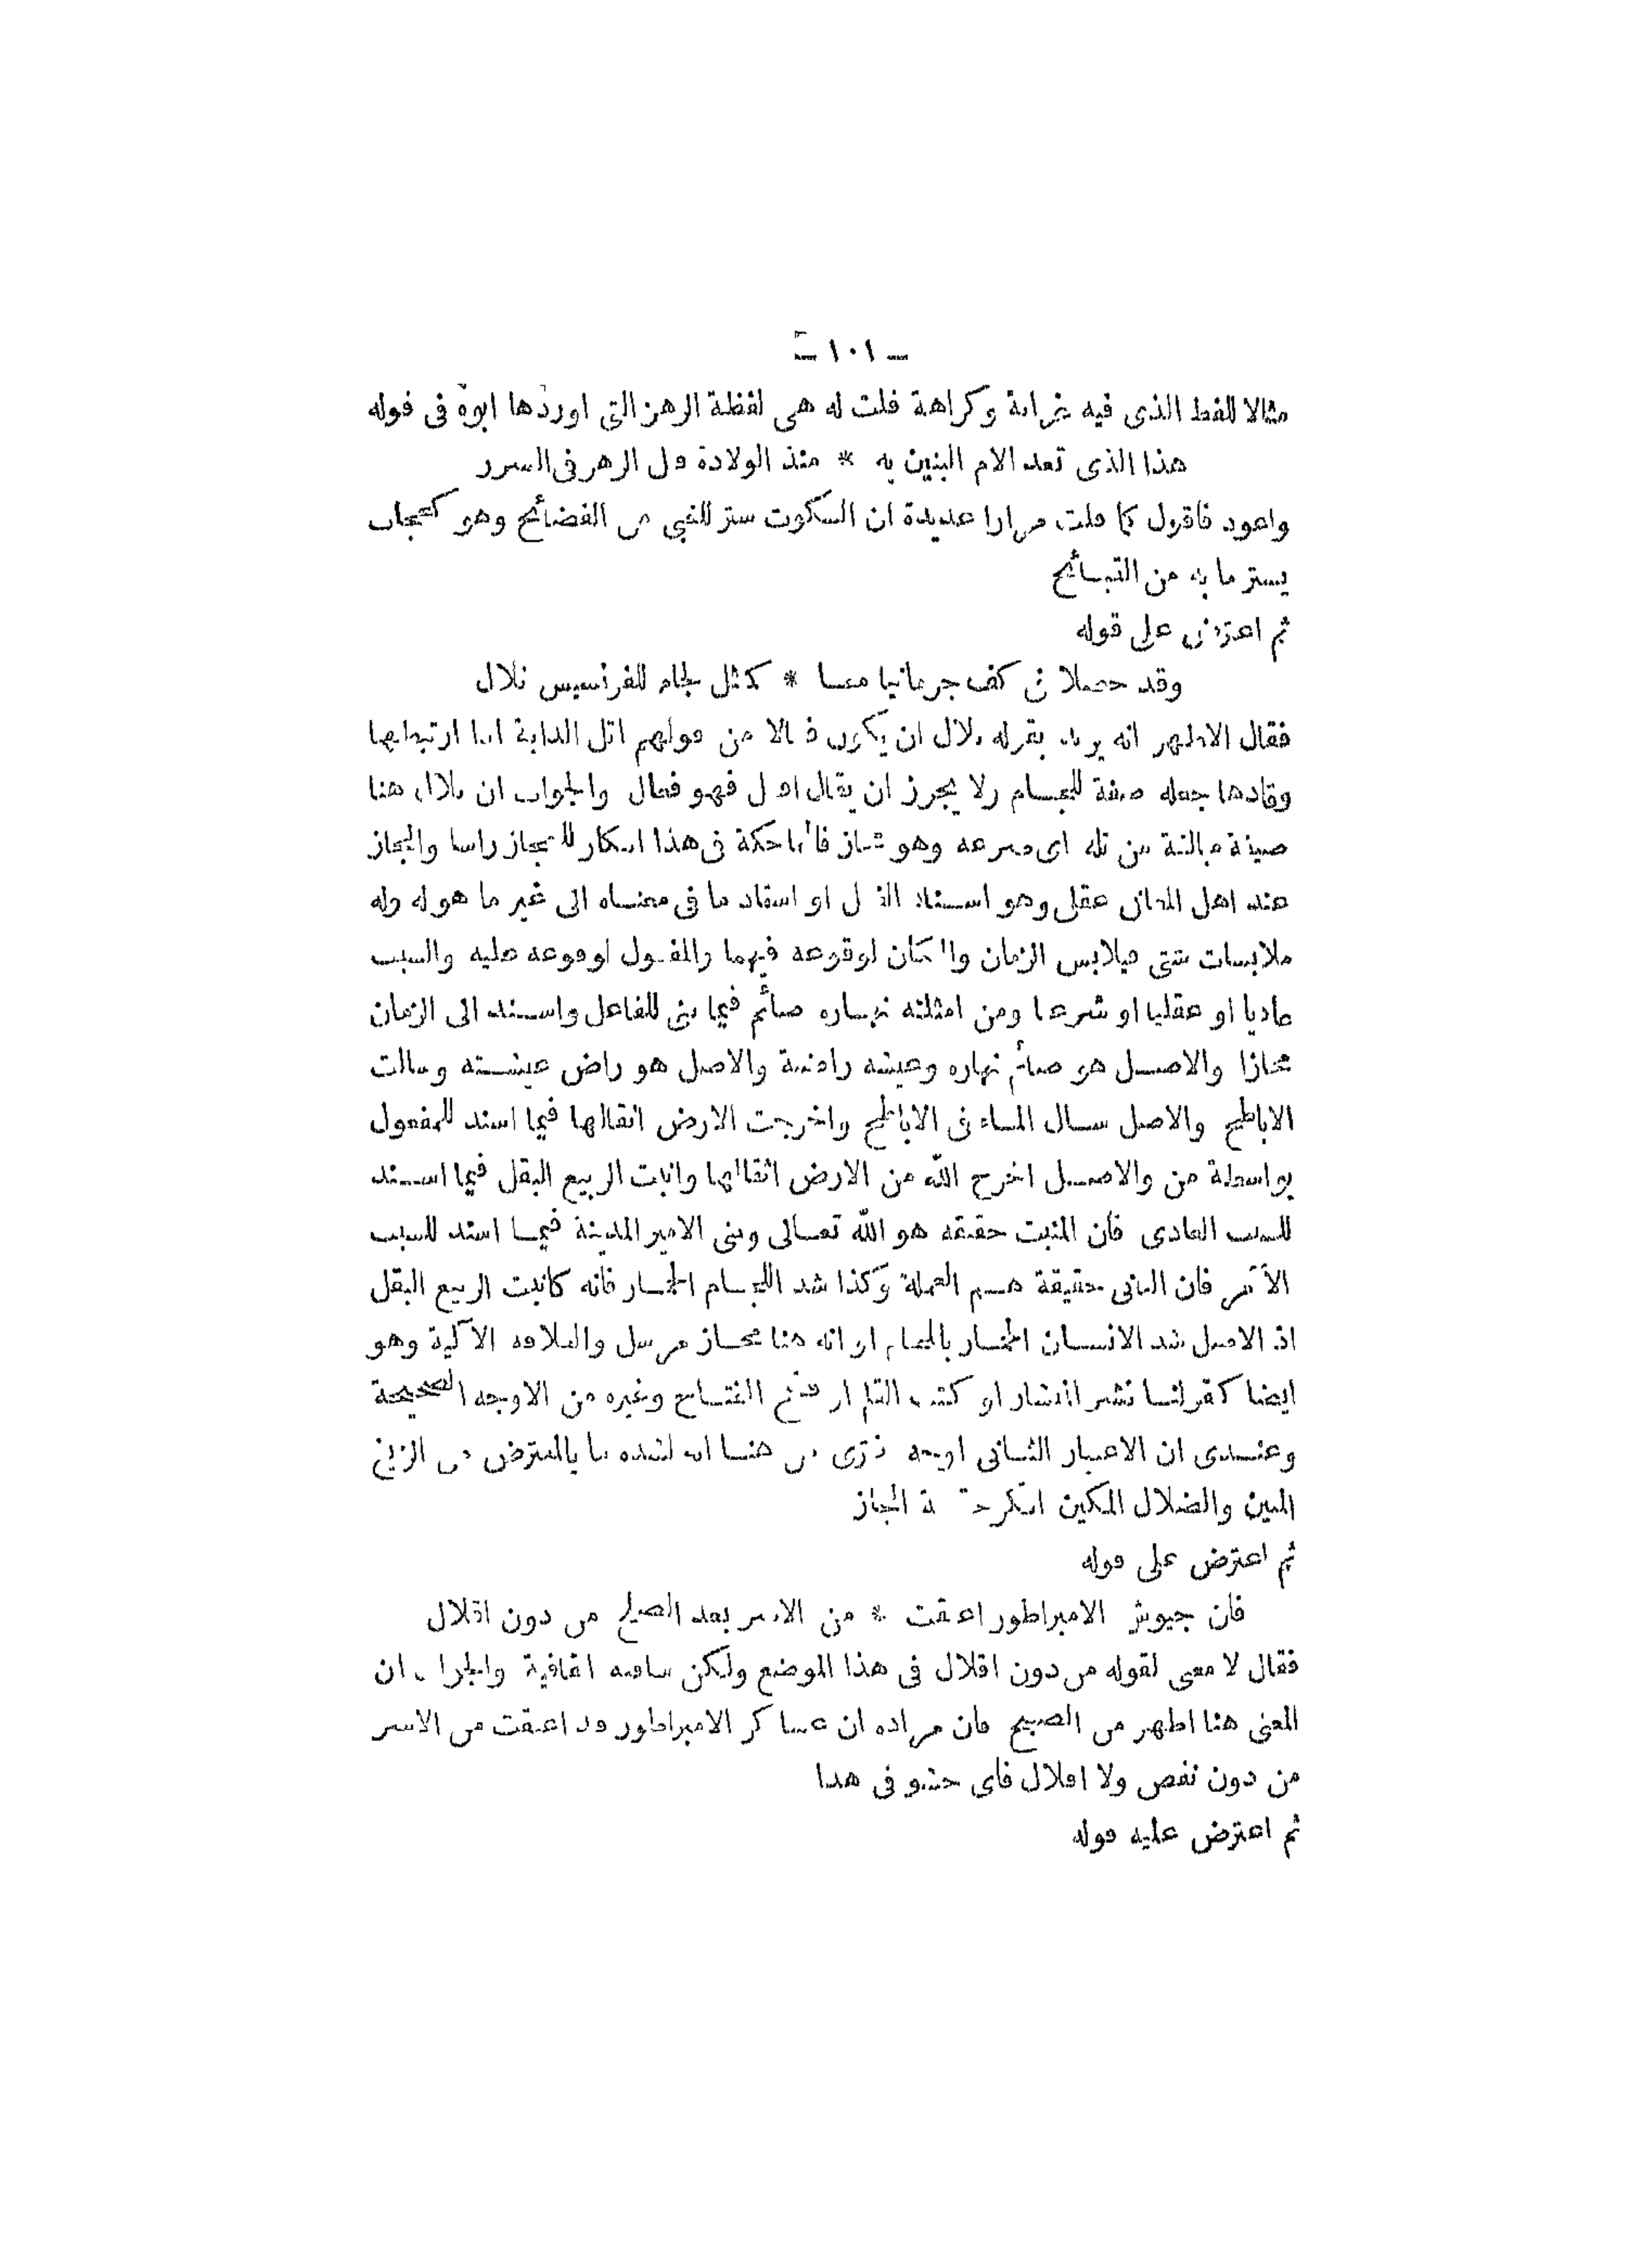 ـ ١٠١ ـ
مثالا للفظ الذى فيه غرابة وكراهة قلت له هى لفظة الرهز التى اوردها ابوه فى قوله
هذا الذى تعد الام البنين به * منذ الولادة قبل الرهز فى السرر
واعود فاقول كما قلت مرارا عديدة ان السكوت ستر للغبى من الفضائح وهو كحجاب
يستر ما به من القبائح
ثم اعترض على قوله
وقد حصلا فى كف جرمانيا معا * كمثل لجام للفرنسيس تلال
فقال الاظهر انه يريد بقوله تلال ان يكون فعالا من قولهم اتل الدابة اذا ارتبطها
وقادها جعله صفة للجام ولا يجوز ان يقال افعل فهو فعال والجواب ان تلالا هنا
صيغة مبالغة من تله اى صرعه وهو مجاز فالمماحكة فى هذا انكار للمجاز راسا والمجاز
عند اهل المعانى عقلى وهو اسناد الفعل او اسناد ما فى معناه الى غير ما هو له وله
ملابسات شتى فيلابس الزمان والمكان لوقوعه فيهما والمفعول لوقوعه عليه والسبب
عاديا او عقليا او شرعيا ومن امثلته نهاره صائم فيما بنى للفاعل واسند الى الزمان
مجازا والاصل هو صائم نهاره وعيشه راضية والاصل هو راض عيشته وسالت
الاباطح والاصل سال الماء فى الاباطح واخرجت الارض اثقالها فيما اسند للمفعول
بواسطة من والاصل اخرج الله من الارض اثقالها وانبت الربيع البقل فيما اسند
للسبب العادى فان المنبت حقيقة هو الله تعالى وبنى الامير المدينة فيما اسند للسبب
الآمر فان البانى حقيقة هم العملة وكذا شد اللجام الحمار فانه كانبت الربيع البقل
اذ الاصل شد الانسان الحمار باللجام او انه هنا مجاز مرسل والعلاقة الآلية وهو
ايضا كقولنا نشر المنشار او كتب القلم او فتح المفتاح وغيره من الاوجه الصحيحة
وعندى ان الاعتبار الثانى اوجه من هنا انه لشدة ما بالمعترض من الزيغ
المبين والضلال المكين انكر حقيقة المجاز
ثم اعترض على قوله
فان جيوش الامبراطور اعتقت * من الاسر بعد الصلح من دون اقلال
فقال لا معنى لقوله من دون اقلال فى هذا الموضع ولكن ساقته القافية والجواب ان
المعنى هنا اظهر من الصبح فان مراده ان عساكر الامبراطور قد اعتقت من الاسر
من دون نقص ولا اقلال فاى حشو فى هذا
ثم اعترض عليه قوله